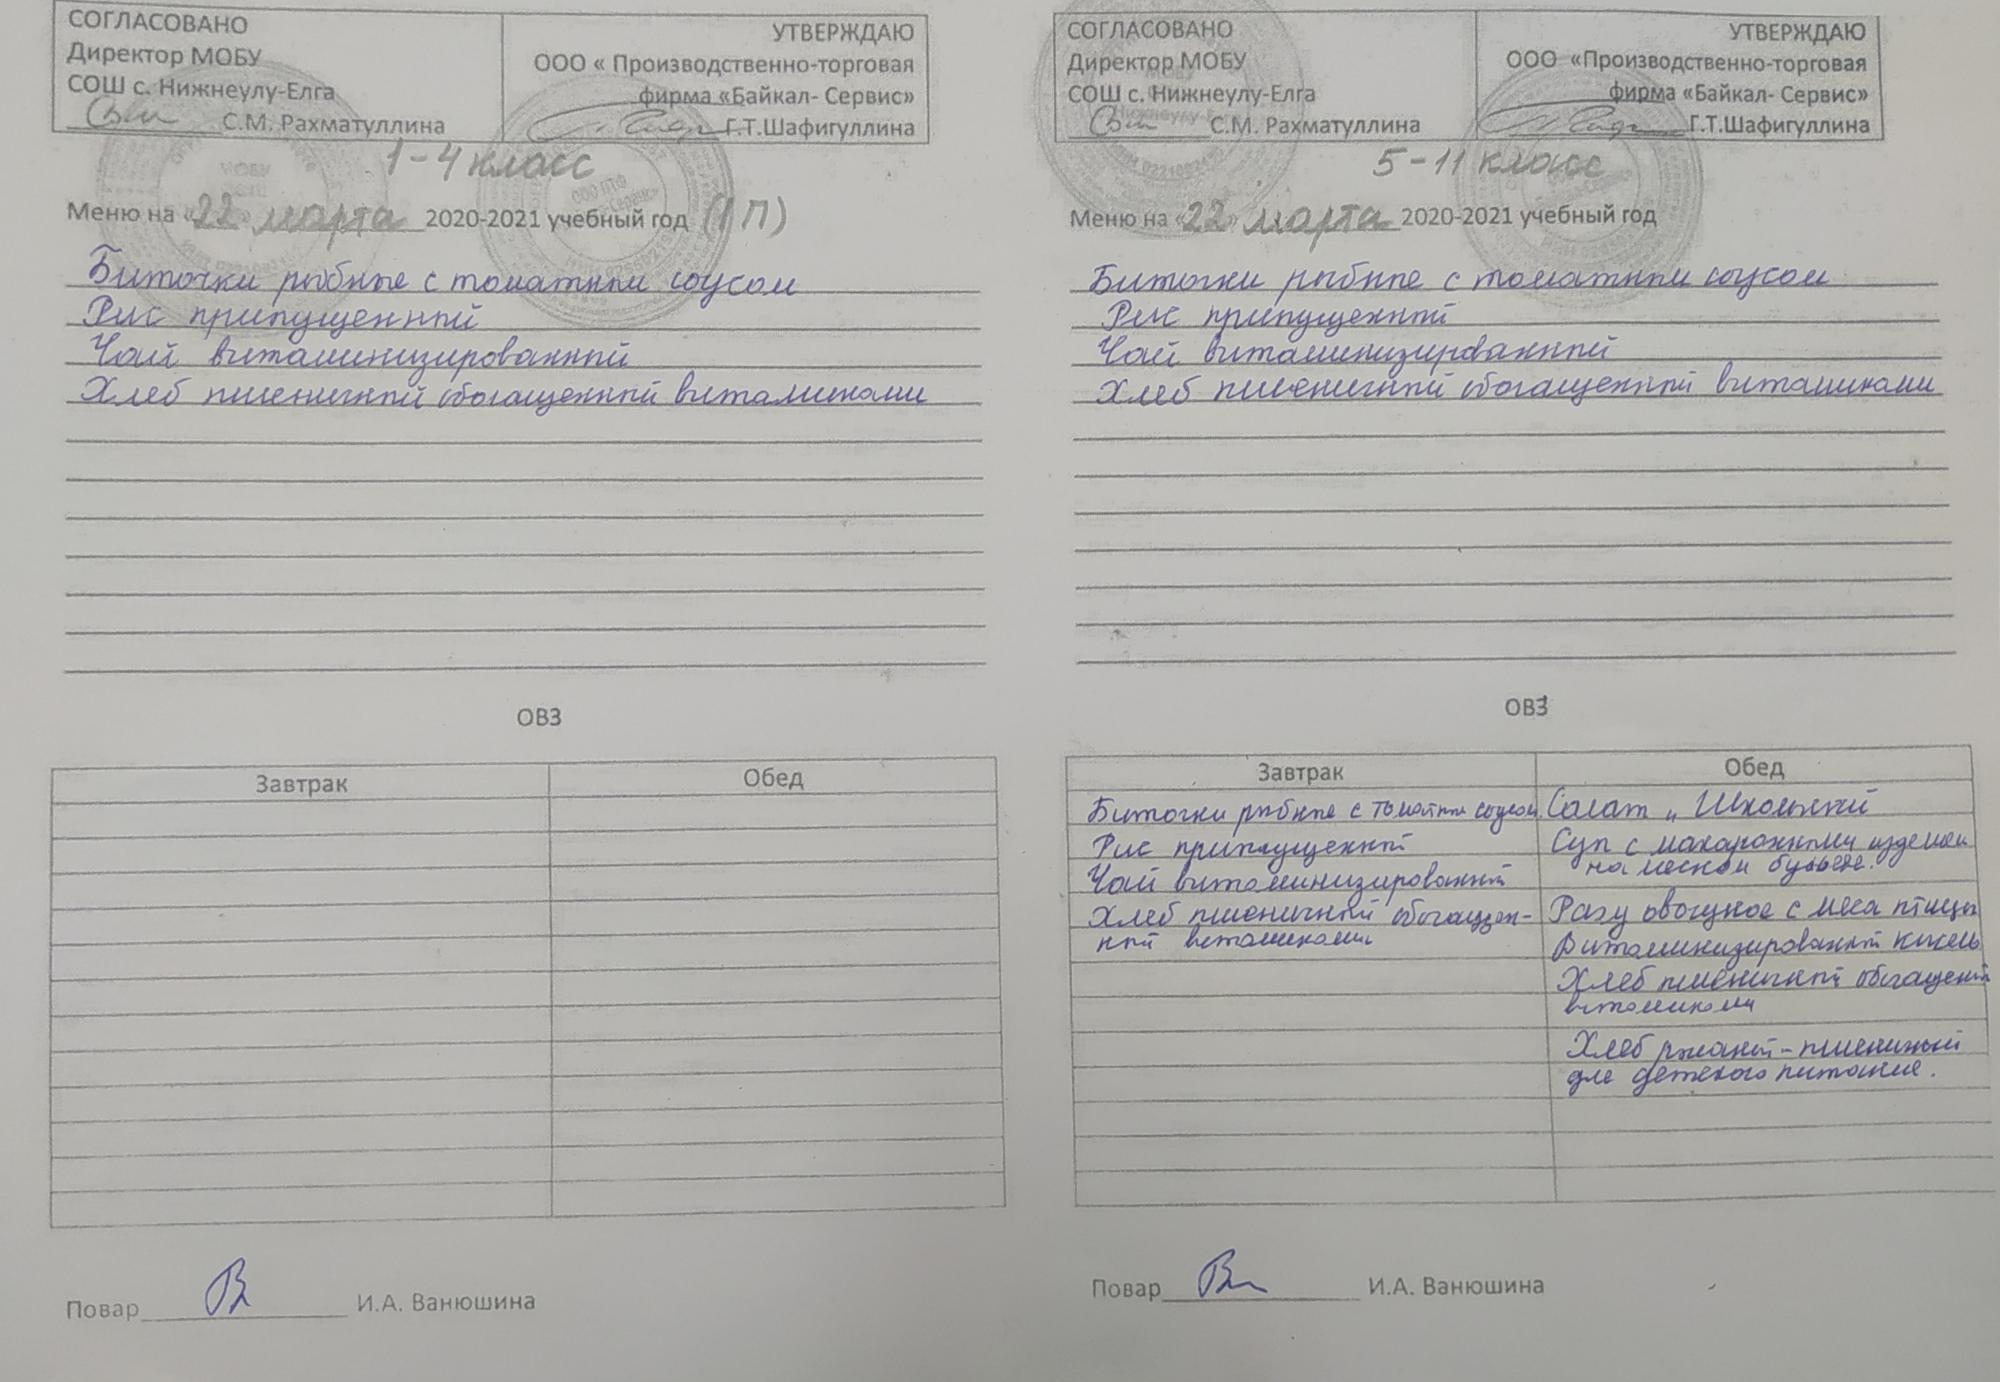 СОГЛАСОВАНО
Директор МОБУ
СОШ с. Нижнеулу-Елга
С.М. Рахматуллина
УТВЕРЖДАЮ
ООО « Производственно-торговая
фирма «Байкал- Сервис»
Г.Т.Шафигуллина
1-4 класс
Меню на «22» марта 2020-2021 учебный год (1 П)
Биточки рыбные с томатным соусом
Рис припущенный
Чай витаминизированный
Хлеб пшеничный обогащенный витаминами
ОВЗ
Завтрак
Обед
Повар
И.А. Ванюшина
СОГЛАСОВАНО
Директор МОБУ
СОШ с. Нижнеулу-Елга
С.М. Рахматуллина
УТВЕРЖДАЮ
ООО «Производственно-торговая
фирма «Байкал- Сервис»
Г.Т.Шафигуллина
5-11 класс
Меню на «22» марта 2020-2021 учебный год
Биточки рыбные с томатным соусом
Рис припущенный
Чай витаминизированный
Хлеб пшеничный обогащенный витаминами
ОВЗ
Завтрак
Биточки рыбные с томатным соусом
Рис припущенный
Чай витаминизированный
Хлеб пшеничный обогащен-
ный витаминами
Обед
Салат „ Школьный
Суп с макаронными изделиями
на мясном бульоне.
Рагу овощное с мяса птицы
Витаминизированный кисель
Хлеб пшеничный обогащеный
витаминами
Хлеб ржаной-пшеничный
для детского питания.
Повар
И.А. Ванюшина